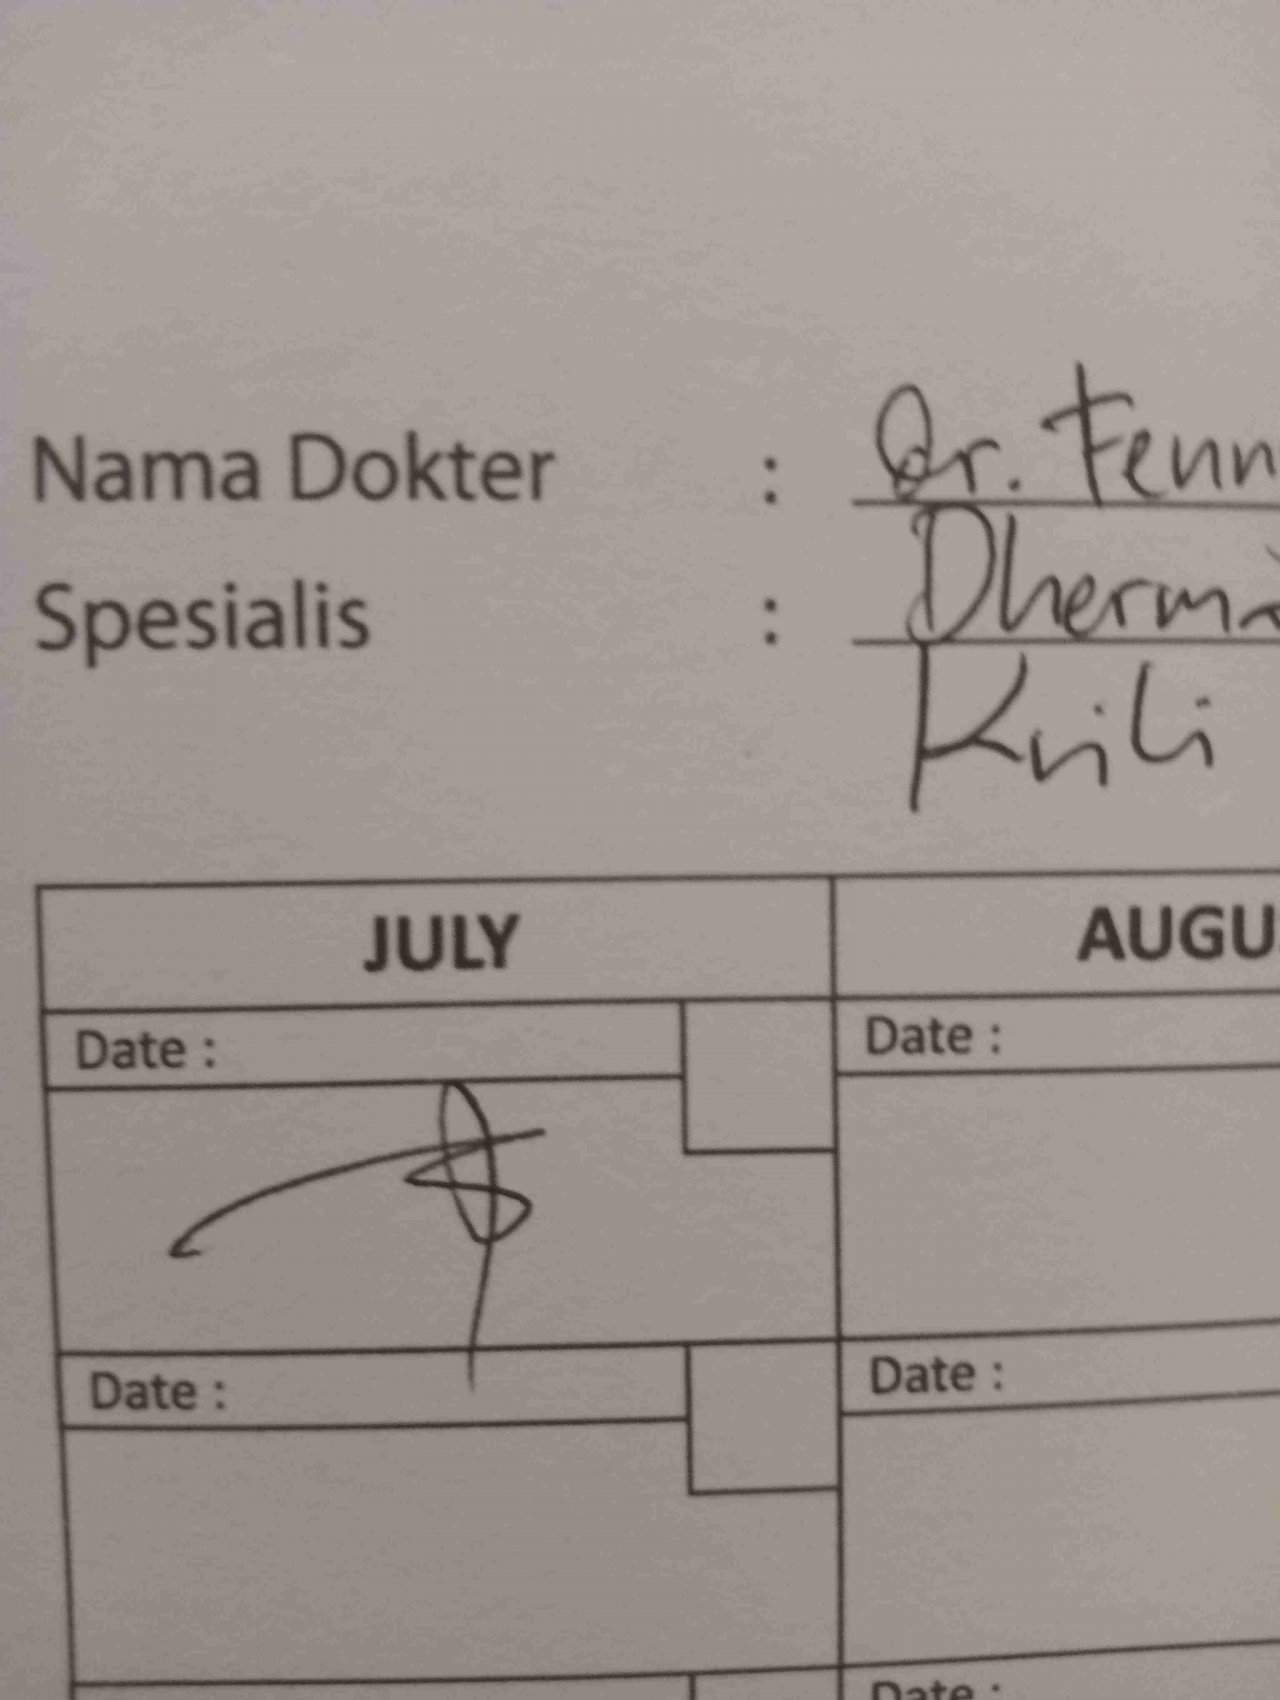 Nama Dokter : Dr. Fenn
Spesialis : Dherma
JULY AUGU
Date : Date :
Date : Date :
Date :